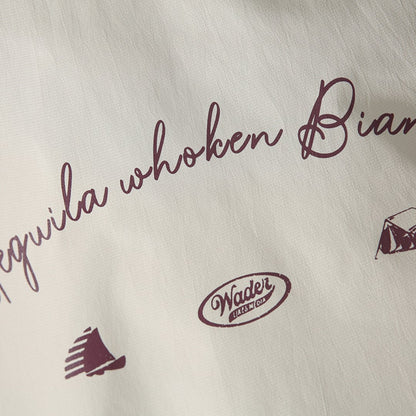 Tequila whoken Bian
Wader